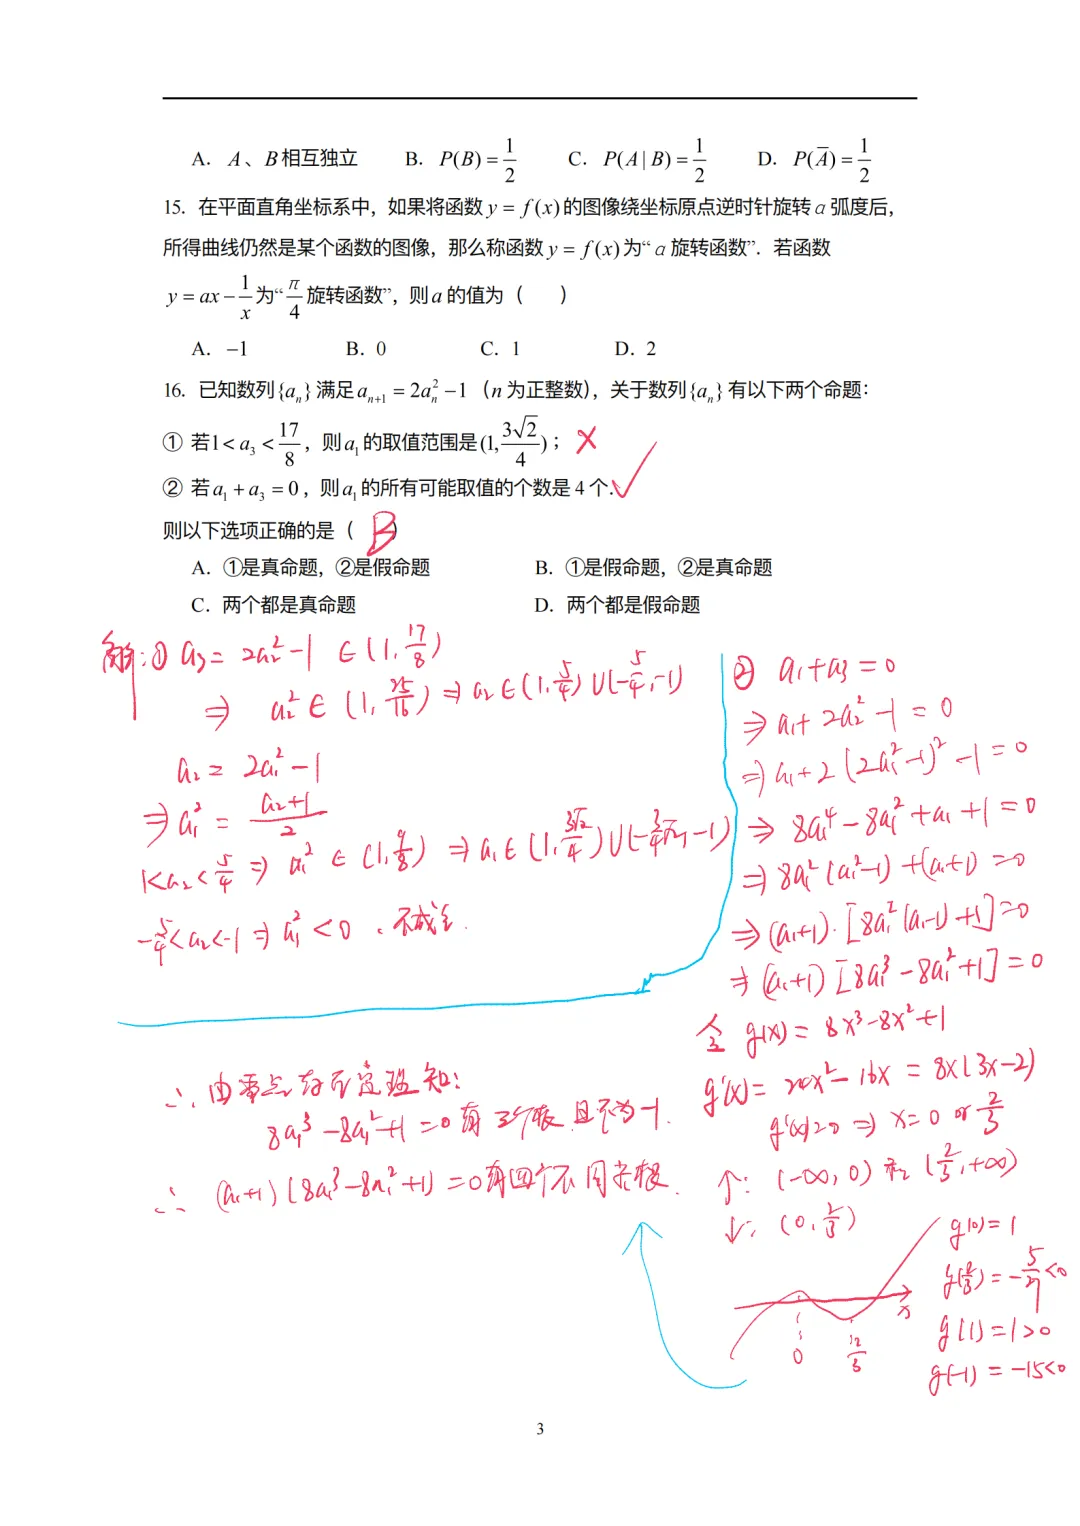 A. A、B相互独立 B. P(B)=1/2 C. P(A|B)=1/2 D. P(A̅)=1/2
15. 在平面直角坐标系中，如果将函数y=f(x)的图像绕坐标原点逆时针旋转α弧度后，
所得曲线仍然是某个函数的图像，那么称函数y=f(x)为“α旋转函数”．若函数
y=ax-1/x为“π/4旋转函数”，则a的值为（ ）
A. -1 B. 0 C. 1 D. 2
16. 已知数列{aₙ}满足aₙ₊₁=2aₙ²-1（n为正整数），关于数列{aₙ}有以下两个命题：
① 若1<a₃<17/8，则a₁的取值范围是(1,3√2/4)； ×
② 若a₁+a₃=0，则a₁的所有可能取值的个数是4个． ✓
则以下选项正确的是（B）
A. ①是真命题，②是假命题 B. ①是假命题，②是真命题
C. 两个都是真命题 D. 两个都是假命题
解：① a₃=2a₂²-1∈(1,17/8)
⇒ a₂²∈(1,25/16)⇒a₂∈(1,5/4)∪(-5/4,-1)
a₂=2a₁²-1
⇒a₁²=(a₂+1)/2
1<a₂<5/4⇒a₁²∈(1,9/8)⇒a₁∈(1,3√2/4)∪(-3/4√2,-1)
-5/4<a₂<-1⇒a₁²<0、不成立.
② a₁+a₃=0
⇒a₁+2a₂²-1=0
⇒a₁+2(2a₁²-1)²-1=0
⇒8a₁⁴-8a₁²+a₁+1=0
⇒8a₁²(a₁²-1)+(a₁+1)=0
⇒(a₁+1)·[8a₁²(a₁-1)+1]=0
⇒(a₁+1)[8a₁³-8a₁²+1]=0
令 g(x)=8x³-8x²+1
g'(x)=24x²-16x=8x(3x-2)
g'(x)=0⇒x=0 or 2/3
↑：(-∞,0)和(2/3,+∞)
↓：(0,2/3)
g(0)=1
g(2/3)=-5/27<0
g(1)=1>0
g(-1)=-15<0
x
0 2/3
∴由零点存在定理知：
8a₁³-8a₁²+1=0有三个根且不为-1.
∴(a₁+1)(8a₁³-8a₁²+1)=0有四个不同实根.
3